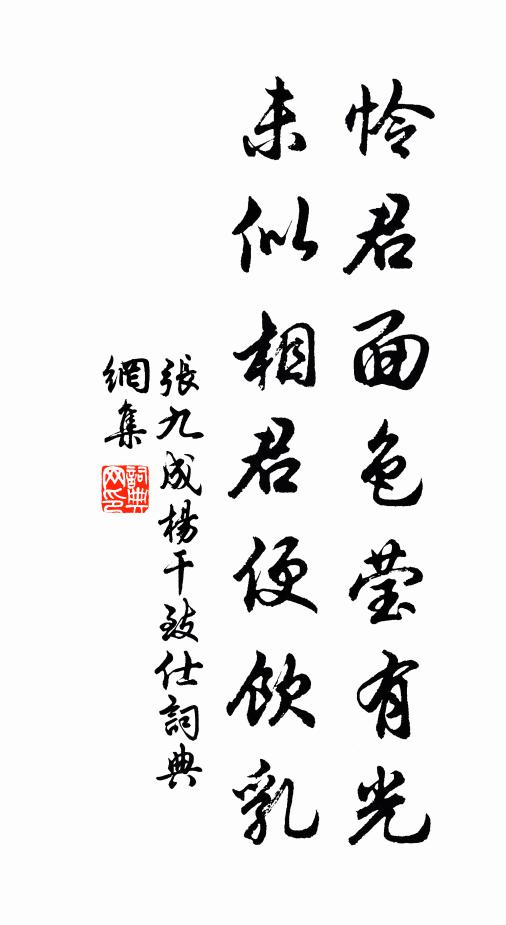 怜君面色莹有光
未似相君便飲乳
張九成楊干致仕詞典
網集
詞典
网印